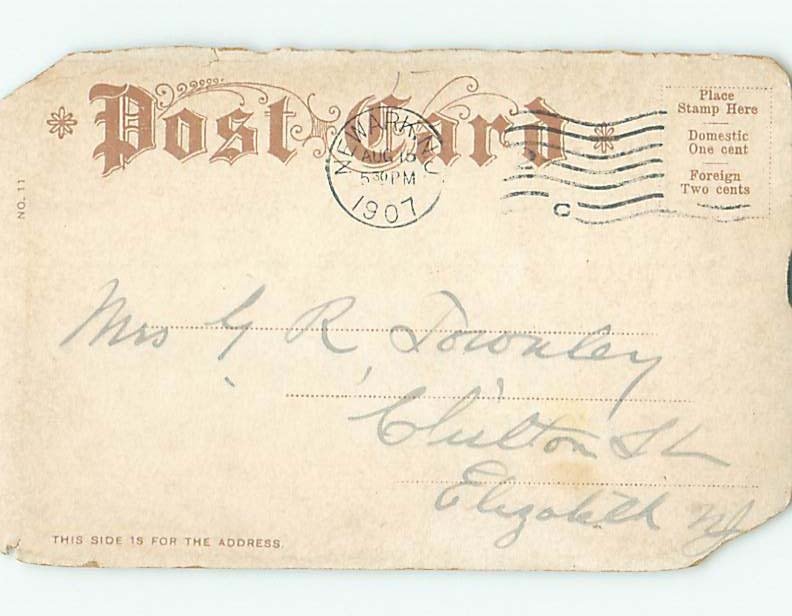 Post Card
NEWARK, N.J.
AUG 16
5 30 PM
1907
C
Place
Stamp Here
Domestic
One cent
Foreign
Two cents
NO. 11
Mrs G R Townley
Chilton St
Elizabeth NJ
THIS SIDE IS FOR THE ADDRESS.